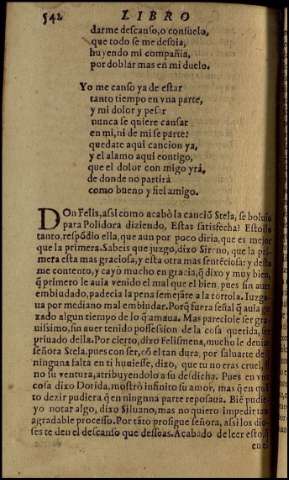 542 LIBRO
darme descanso, o consuelo,
que todo se me desvia,
huyendo mi compañia,
por doblar mas en mi duelo.
Yo me canso ya de estar
tanto tiempo en vna parte,
y mi dolor y pesar
nunca se quiere cansar
en mi, ni de mi se parte:
quedate aqui cancion ya,
y el alamo aqui contigo,
que el dolor con migo yrà,
de donde no partirà
como bueno y fiel amigo.
DOn Felis, assi como acabò la canciõ Stela, se boluio
para Polidora diziendo, Estas satisfecha? Estoilo
tanto, respõdio ella, que aun por poco diria, que es mejor
que la primera. Sabeis que juzgo, dixo Sireno, que la pri-
mera esta mas graciosa, y esta otra mas sentẽciosa: y della
me contento, y cayò mucho en gracia, q̃ dixo y muy bien,
q̃ primero le auia venido el mal que el bien. pues sin auer
embiudado, padecia la pena semejãte a la tortola. Iuzga-
ua por mediano mal embiudar, Porq̃ fuera señal q̃ auia go-
zado algun tiempo de lo q̃ amaua. Mas pareciole ser gra-
uissimo, sin auer tenido possession de la cosa querida, ser
priuado della. Por cierto, dixo Felismena, mucho le deuia
señora Stela, pues con ser, cõ el tan dura, por saluarte de
ninguna falta en ti huuiesse, dixo, que tu no eras cruel, si
no su ventura, atribuyendolo a su desdicha. Pues en vna
cosa dixo Dorida, mostrò infinito su amor, mas q̃ en quã
to dezir pudiera q̃ en ninguna parte reposaua. Biẽ pudie-
yo notar algo, dixo Siluano, mas no quiero impedir tan
agradable processo. Por tãto prosigue señora, assi los dio-
ses te den el descanso que desseas. Acabado de leer esto, q̃